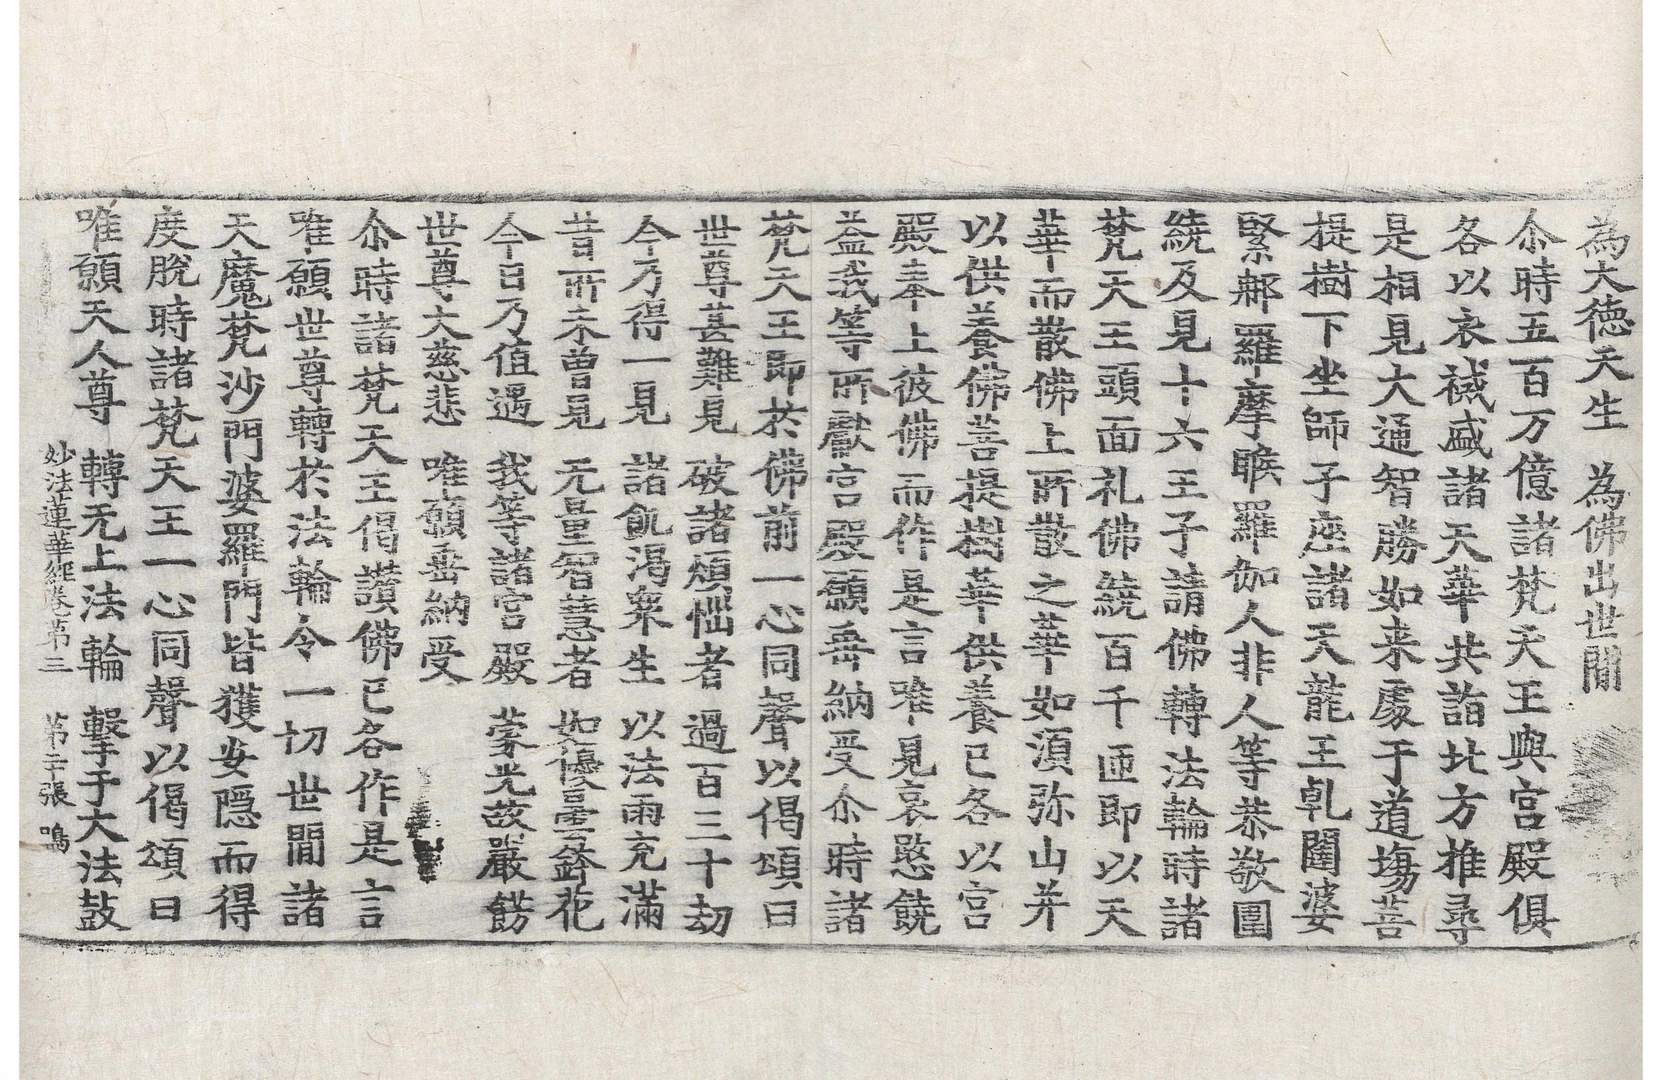 為大徳天生　為佛出世間
尒時五百万億諸梵天王與宮殿俱
各以衣祴盛諸天華共詣北方推尋
是相見大通智勝如来處于道塲菩
提樹下坐師子座諸天龍王乹闥婆
緊那羅摩睺羅伽人非人等恭敬圍
繞及見十六王子請佛轉法輪時諸
梵天王頭面礼佛繞百千匝即以天
華而散佛上所散之華如湏弥山并
以供養佛菩提樹華供養已各以宮
殿奉上彼佛而作是言唯見哀愍饒
益我等所獻宮殿願垂納受尒時諸
梵天王即於佛前一心同聲以偈頌曰
世尊甚難見　破諸煩惱者　過百三十劫
今乃得一見　諸飢渇衆生　以法雨充滿
昔所未曾見　无量智慧者　如優曇鉢花
今日乃值遇　我等諸宮殿　蒙光故嚴餝
世尊大慈悲　唯願垂納受
尒時諸梵天王偈讃佛已各作是言
唯願世尊轉於法輪令一切世間諸
天魔梵沙門婆羅門皆獲安隠而得
度脫時諸梵天王一心同聲以偈頌曰
唯願天人尊　轉无上法輪　擊于大法鼓
妙法蓮華經卷第三　第二十張　鳴